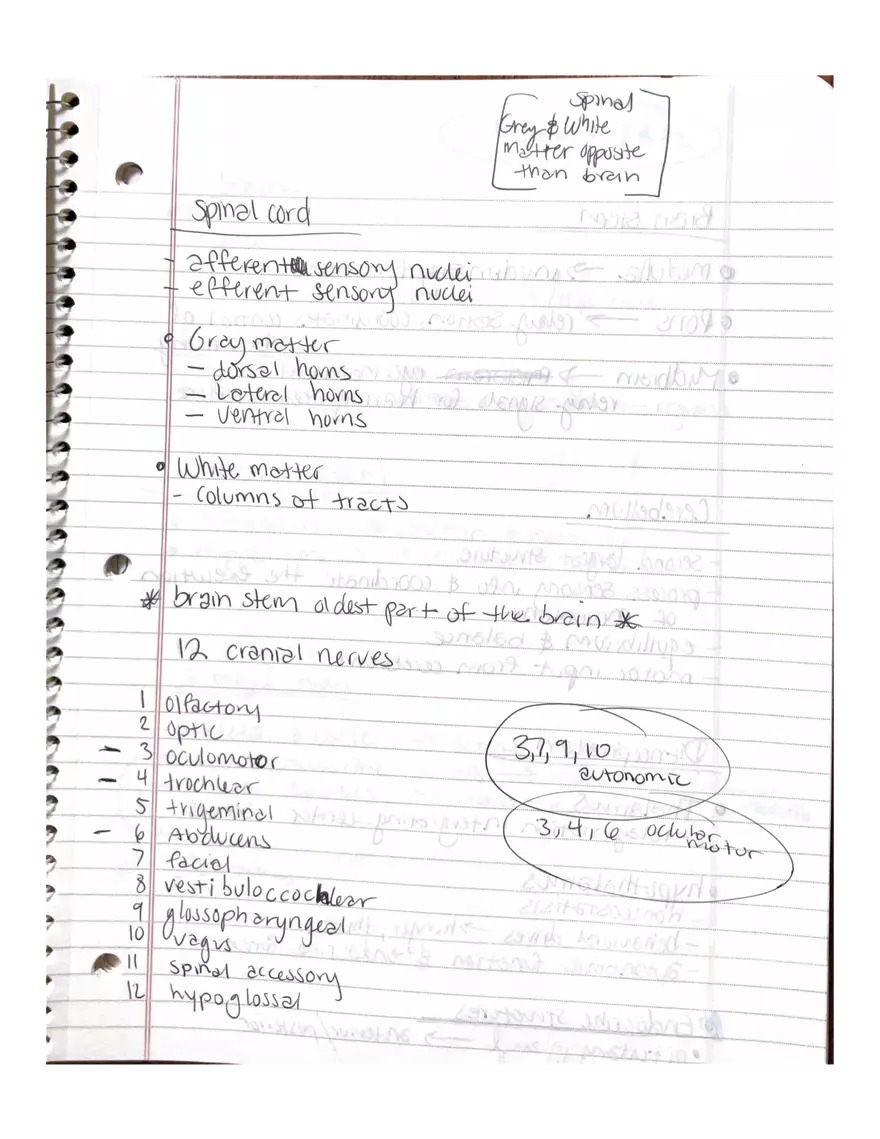 Spinal
Grey & White
matter opposite
than brain
Spinal cord
- afferent sensory nuclei
- efferent sensory nuclei
• Gray matter
- dorsal horns
- Lateral horns
- Ventral horns
• White matter
- Columns of tracts
* brain stem oldest part of the brain *
12 cranial nerves
1 olfactory
2 optic
- 3 oculomotor
- 4 trochlear
5 trigeminal
- 6 Abducens
7 facial
8 vestibuloccochlear
9 glossopharyngeal
10 vagus
11 spinal accessory
12 hypoglossal
3,7,9,10
autonomic
3,4,6 oclutor
motor